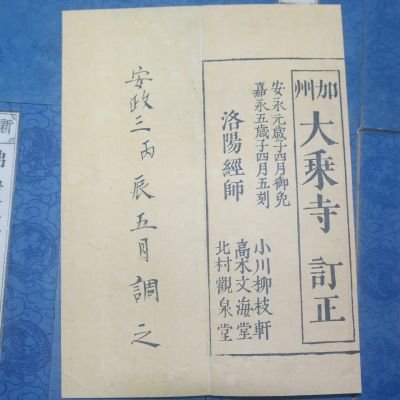 加州
大乗寺 訂正
安永元歳子四月御免
嘉永五歳子四月五刻
洛陽經師
小川柳枝軒
髙木文海堂
北村觀泉堂
安政三丙辰五月調之
新